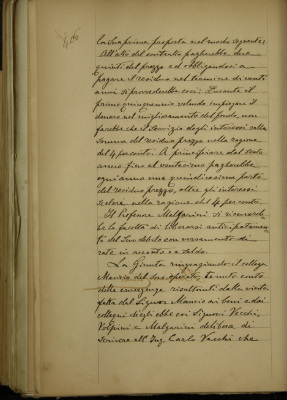 la sua prima proposta nel modo seguente:
All'atto del contratto pagherebbe due
quinti del prezzo ed obbligandosi a
pagare il residuo nel termine di venti
anni si procederebbe così: Durante il
primo quinquennio volendo impiegare il
denaro nel miglioramento del fondo, non
farebbe che il servizio degli interessi sulla
somma del residuo prezzo nella ragione
del 4 per cento. A principiare dal sesto
anno fino al ventesimo pagherebbe
ogni anno una quindicesima parte
del residuo prezzo, oltre gli interessi
a scalare nella ragione del 4 per cento.
Il Professore Malfarini si riserverebbe
la facoltà di liberarsi anticipatamente
del suo debito con versamento di
rate in acconto o a saldo.
La Giunta ringraziando il collega
Mancio del suo operato, tenuto conto
delle emergenze risultanti dalla visita
fatta dal Signor Mancio ai beni e dai
colloqui ch'egli ebbe coi Signori Vacchi,
Volpini e Malfarini delibera di
scrivere all'Ing. Carlo Vacchi che